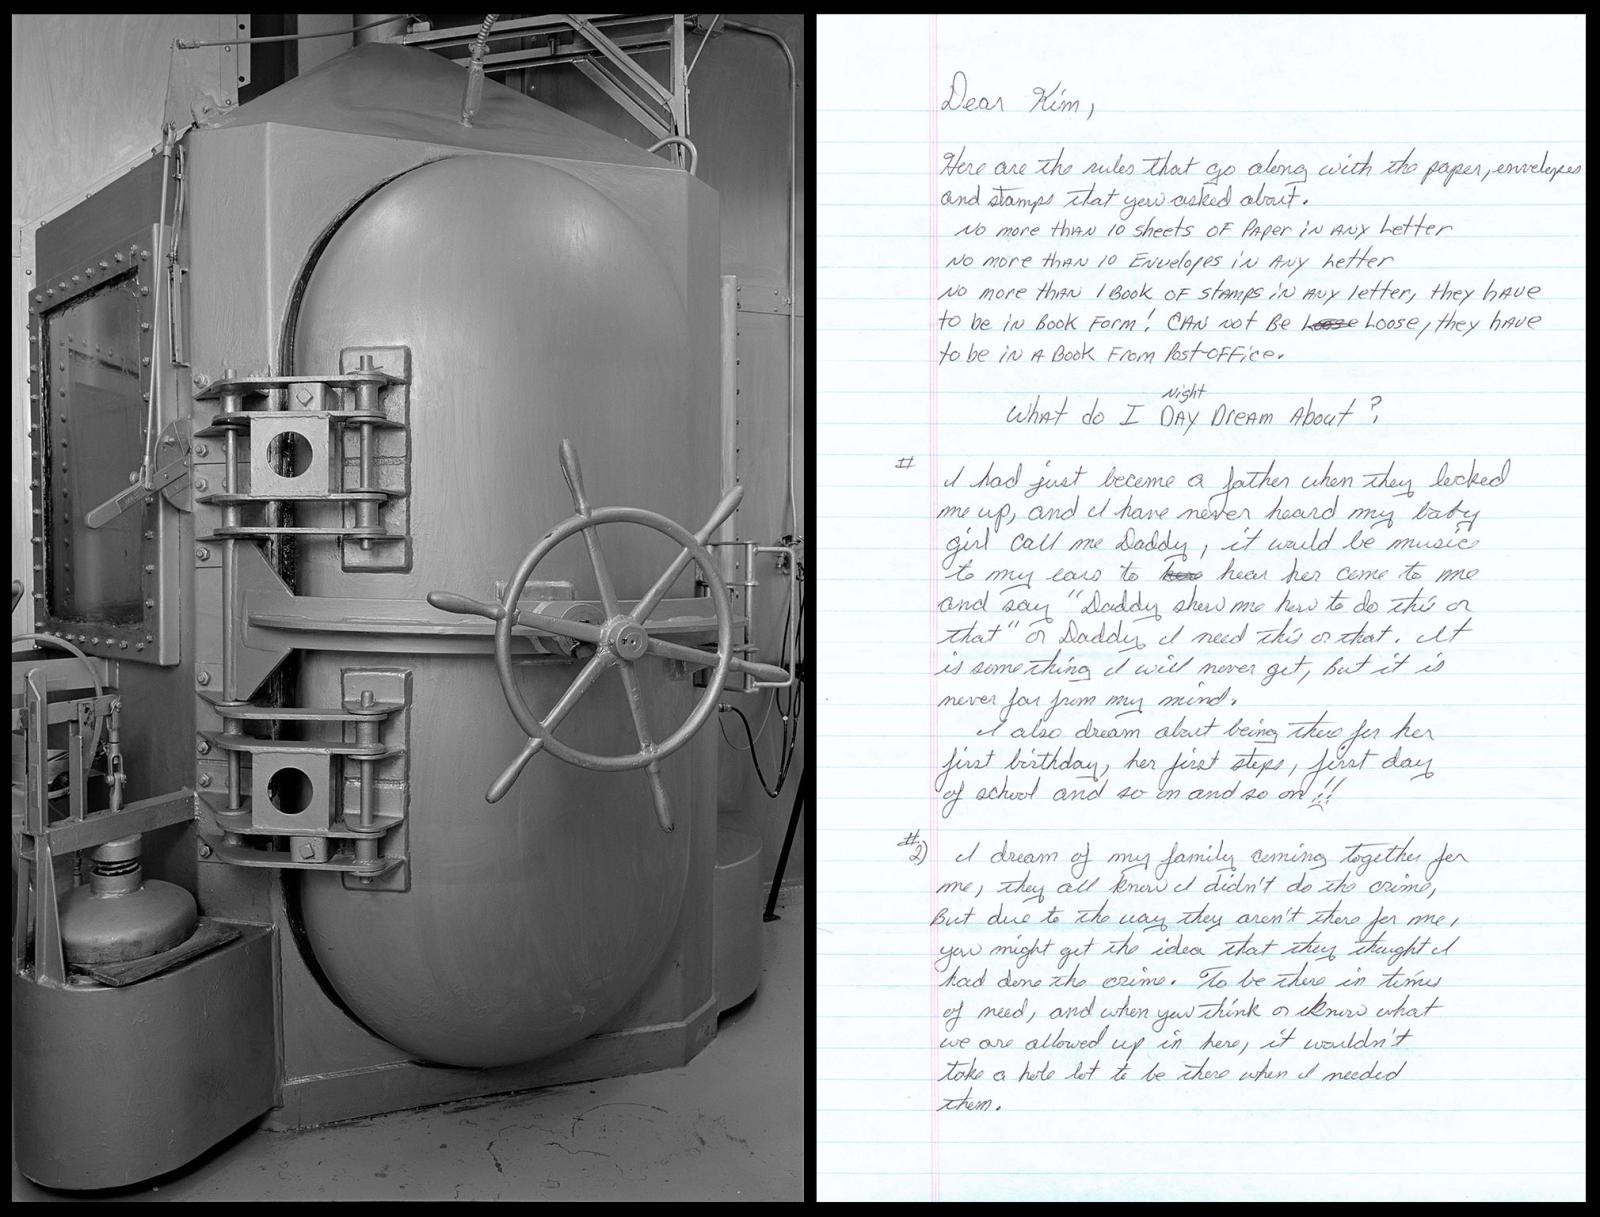 Dear Kim,
Here are the rules that go along with the paper, envelopes
and stamps that you asked about.
No more than 10 sheets of Paper in Any Letter
No more than 10 Envelopes in Any Letter
No more than 1 Book of stamps in Any letter, they have
to be in Book Form! Can not Be Loose Loose, they have
to be in A Book From Post-Office.
Night
What do I Day Dream About?
# I had just become a father when they locked
me up, and I have never heard my baby
girl call me Daddy, it would be music
to my ears to here hear her come to me
and say "Daddy show me how to do this or
that" or Daddy I need this or that. It
is something I will never get, But it is
never far from my mind.
I also dream about being there for her
first birthday, her first steps, first day
of school and so on and so on!!
#2) I dream of my family coming together for
me, they all know I didn't do the crime,
But due to the way they aren't there for me,
you might get the idea that they thought I
had done the crime. To be there in times
of need, and when you think or know what
we are allowed up in here, it wouldn't
take a hole lot to be there when I needed
them.